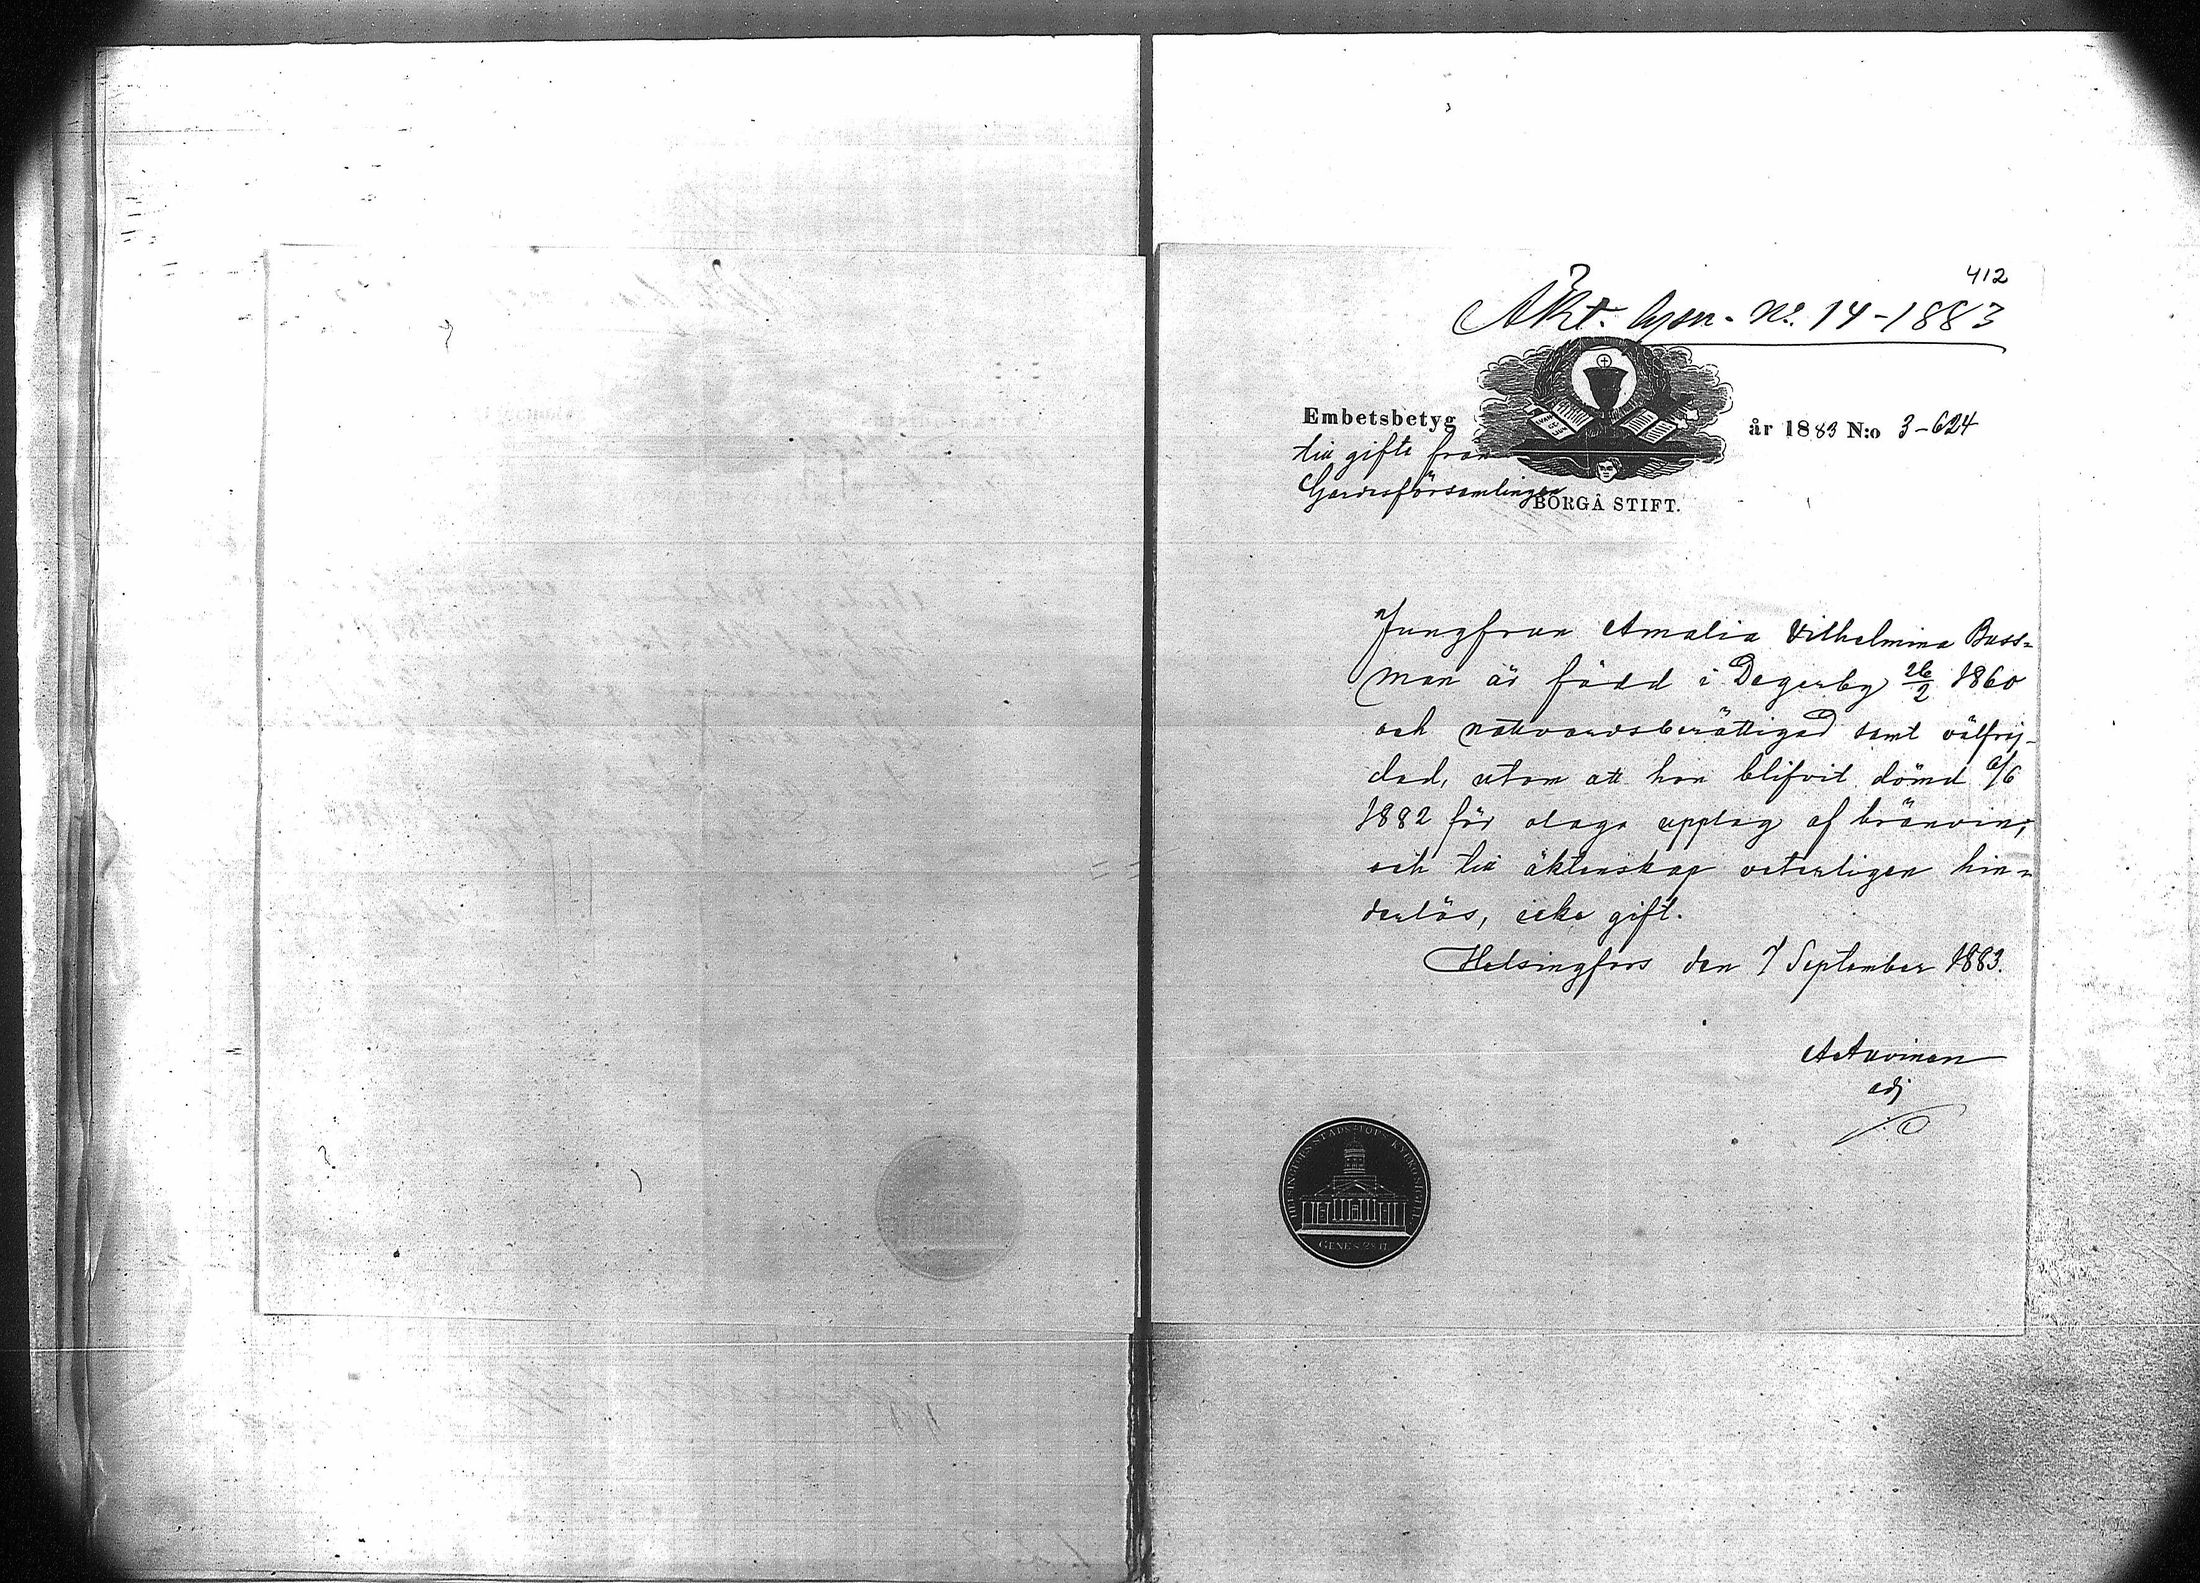 412
Äkt. lysn. No. 14-1883
Embetsbetyg år 1883 N:o 3-624
till gifte från
Gardesförsamlingen
BORGÅ STIFT.
Jungfrun Amalia Vilhelmina Buss=
man är född i Degerby 26/2 1860
och nattvardsberättigad samt välfrej-
dad, utom att hon blifvit dömd 6/6
1882 för olaga upplag af bränvin,
och till äktenskap veterligen hin=
derlös, icke gift.
Helsingfors den 7 September 1883.
A Auvinen
adj
GENES 28 17